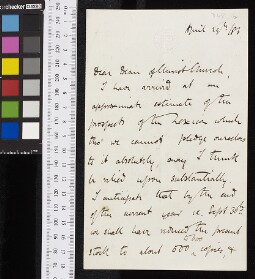 April 29th/83
Dear Dean of Christ Church,
I have arrived at an
approximate estimate of the
prospects of the Lexicon which
tho' we cannot pledge ourselves
to it absolutely, may I think
be relied upon substantially.
I anticipate that by the end
of the current year i.e. Sept 30th
we shall have reduced the present
stock to about 500 copies, &